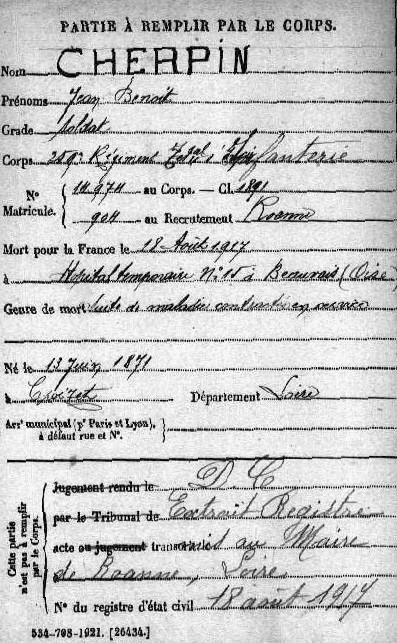 PARTIE À REMPLIR PAR LE CORPS.
Nom CHERPIN
Prénoms Jean Benoit
Grade Soldat
Corps 259e Régiment d'Infanterie
N° Matricule. 14974 au Corps. — Cl. 1891
904 au Recrutement Roanne
Mort pour la France le 18 Août 1917
à Hôpital temporaire N° 15 à Beauvais (Oise)
Genre de mort Suite de maladie contractée en service
Né le 13 Juin 1871
à Croizet Département Loire
Arrt municipal (pr Paris et Lyon), à défaut rue et N°.
Cette partie n'est pas à remplir par le Corps.
Jugement rendu le D C
par le Tribunal de Extrait Registre
acte ou jugement transcrit au Maire
de Roanne, Loire
N° du registre d'état civil 18 août 1917
534-708-1921. [26434.]